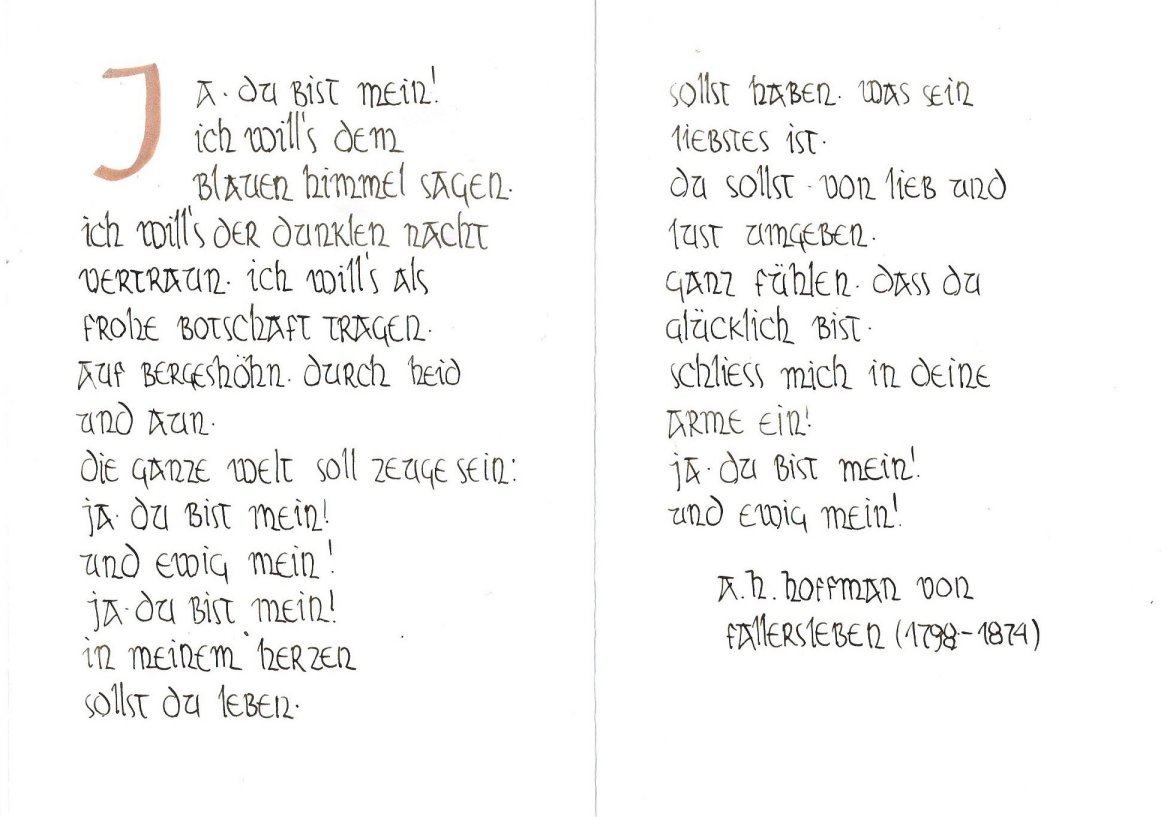 JA· DU BIST MEIN!
ICH WILL'S DEM
BLAUEN HIMMEL SAGEN·
ICH WILL'S DER DUNKLEN NACHT
VERTRAUN· ICH WILL'S ALS
FROHE BOTSCHAFT TRAGEN·
AUF BERGESHÖHN· DURCH HEID
UND AUN·
DIE GANZE WELT SOLL ZEUGE SEIN:
JA· DU BIST MEIN!
UND EWIG MEIN!
JA· DU BIST MEIN!
IN MEINEM HERZEN
SOLLST DU LEBEN·
SOLLST HABEN· WAS SEIN
LIEBSTES IST·
DU SOLLST · VON LIEB UND
LUST UMGEBEN·
GANZ FÜHLEN· DASS DU
GLÜCKLICH BIST·
SCHLIESS MICH IN DEINE
ARME EIN!
JA· DU BIST MEIN!
UND EWIG MEIN!
A.H. HOFFMAN VON
FALLERSLEBEN (1798-1874)